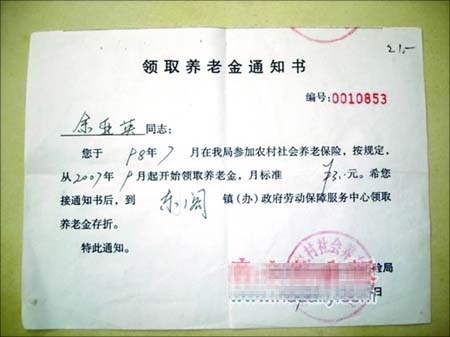 21.-
领取养老金通知书
编号:0010853
余亚英同志:
您于98年7月在我局参加农村社会养老保险,按规定,
从2007年9月起开始领取养老金,月标准 。希您
接通知书后,到 镇(办)政府劳动保障服务中心领取
养老金存折。
特此通知。
农村社会养
险局
日